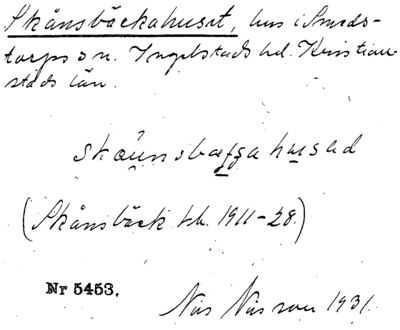 Skånsbäckahuset, hus i Smeds-
torps sn. Ingelstads hd. Kristian-
stads län.
skåunsbæggahused
(Skånsbäck tk. 1911-28.)
Nr 5453.
Nils Nilsson 1931.